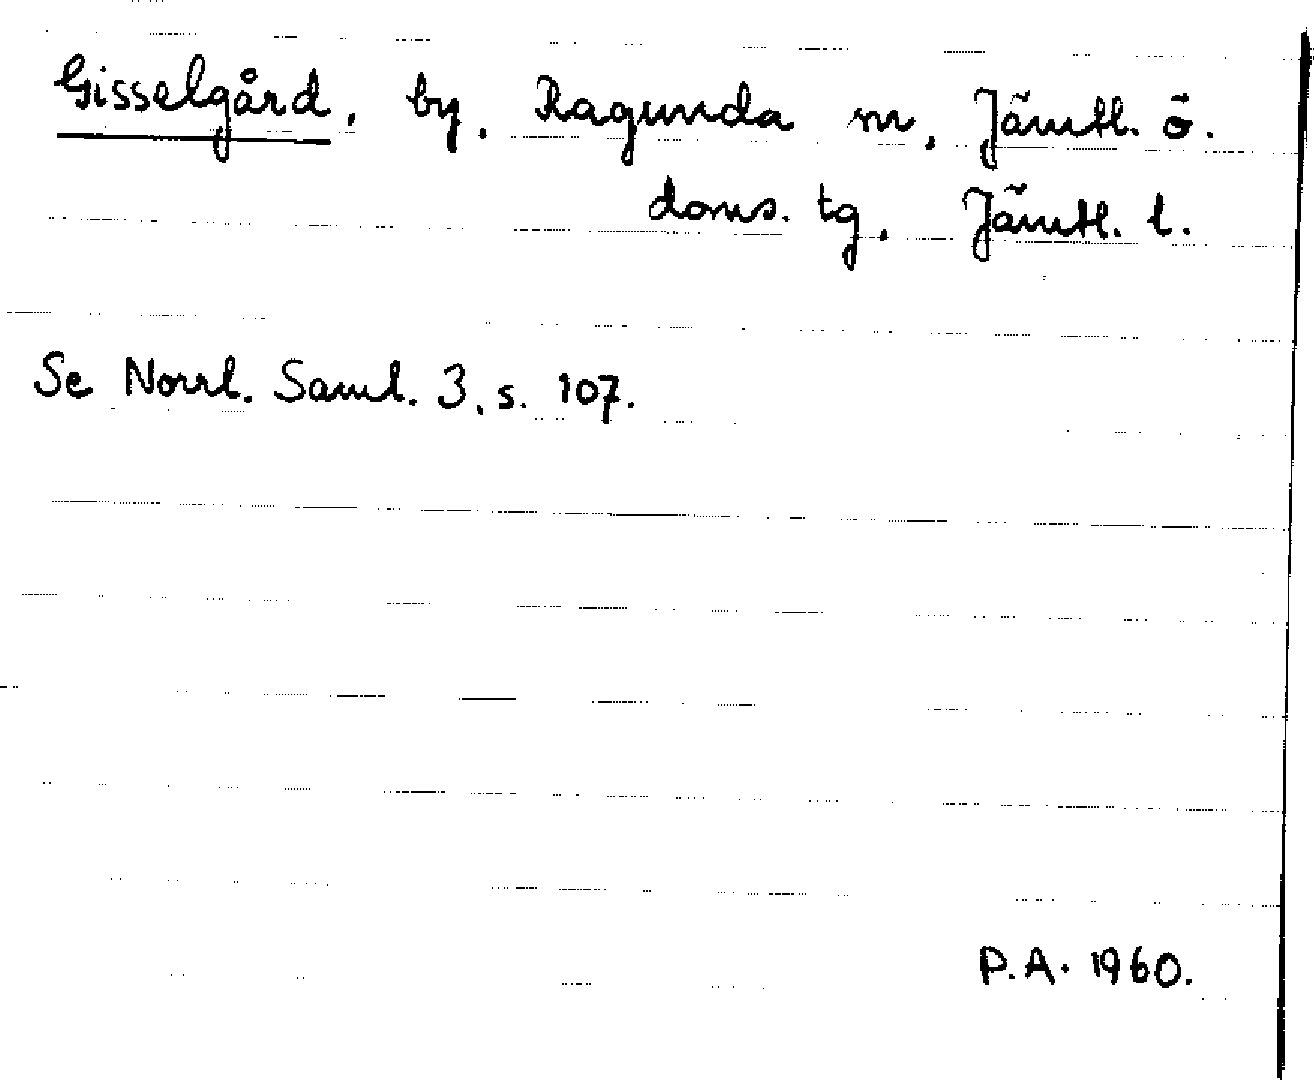 Gisselgård, by, Ragunda sn, Jämtl. ö.
doms. tg, Jämtl. l.
Se Norrl. Saml. 3, s. 107.
P.A. 1960.